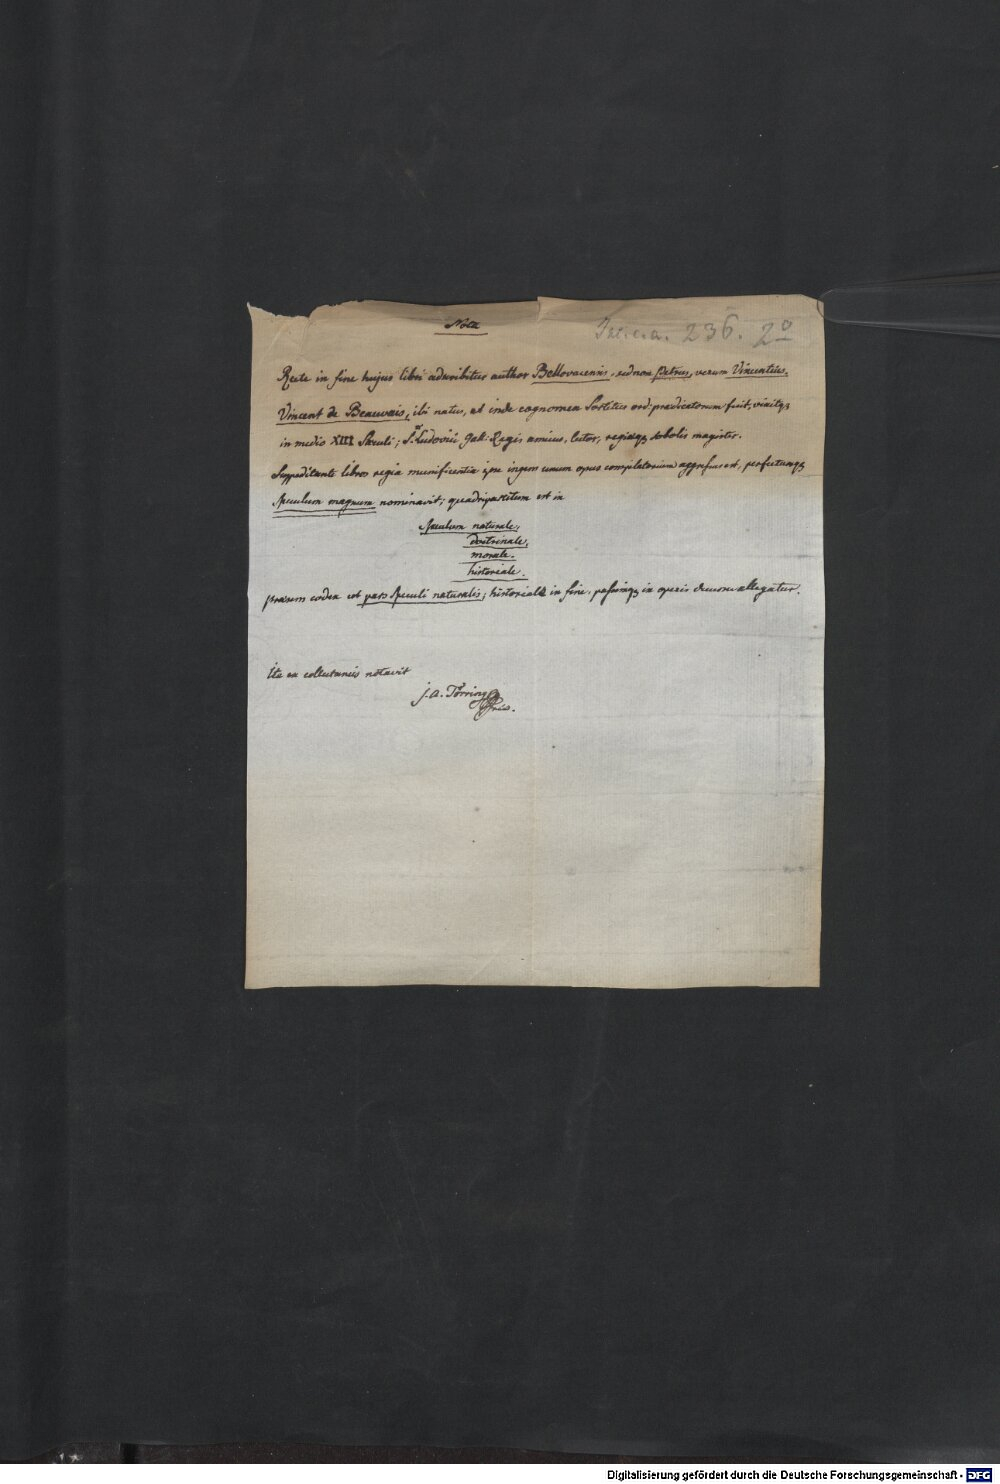 Nota
Inc. c. a. 236. 2º
Recte in fine hujus libri adscribitur author Bellovacensis, sed non Petrus, verum Vincentius.
Vincent de Beauvais, ibi natus, et inde cognomen Sortitus ord: prædicatorum fuit, vixitqȝ
in medio XIII Sæculi; S.ti Ludovici Gall: Regis amicus, lector, regiæqȝ sobolis magister.
Suppeditante libros regia munificentia ipse ingens unum opus compilatorium aggressus est, perfectumqȝ
Speculum magnum nominavit; quadripartitum est in
Speculum naturale,
doctrinale,
morale.
historiale.
præsens codex est pars Speculi naturalis; historiale in fine, passimqȝ in operis decursu allegatur.
Ita ex collectaneis notavit
J. A. Törring